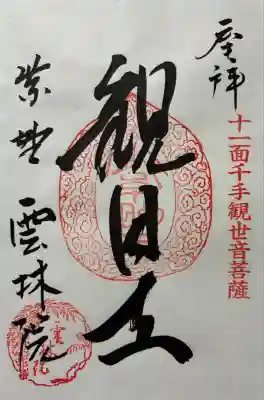 奉拝
十一面千手観世音菩薩
観
紫野 雲林院